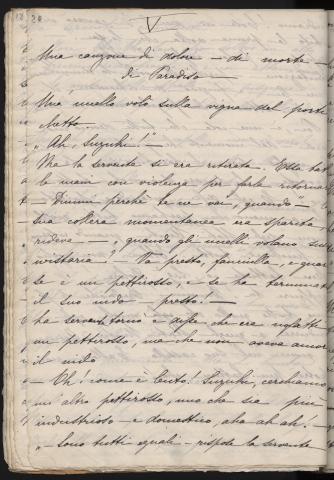 V
Una canzone di dolore - di morte -
di Paradiso -
Un' uccello volò sulla vigna del porti
chetto.
"Ah, Suzuki!" -
Ma la servente si era ritirata. Essa bat
le mani con violenza per farla ritornar
- Dimmi perchè te ne vai, quando" -
sua collera momentanea era sparita
rideva - "quando gli uccelli volano sull
wistaria? - Va presto, fanciulla, e guar
se è un pettirosso, e se ha terminat
il suo nido - presto! -
La servente tornò e disse che era infatti
un pettirosso, ma che non aveva ancor
il nido
- Oh! come è lento! Suzuki, cerchiamo
un altro pettirosso, uno che sia più
industrioso - e domestico, aha ah ah. -
"- Sono tutti eguali - rispose la servente